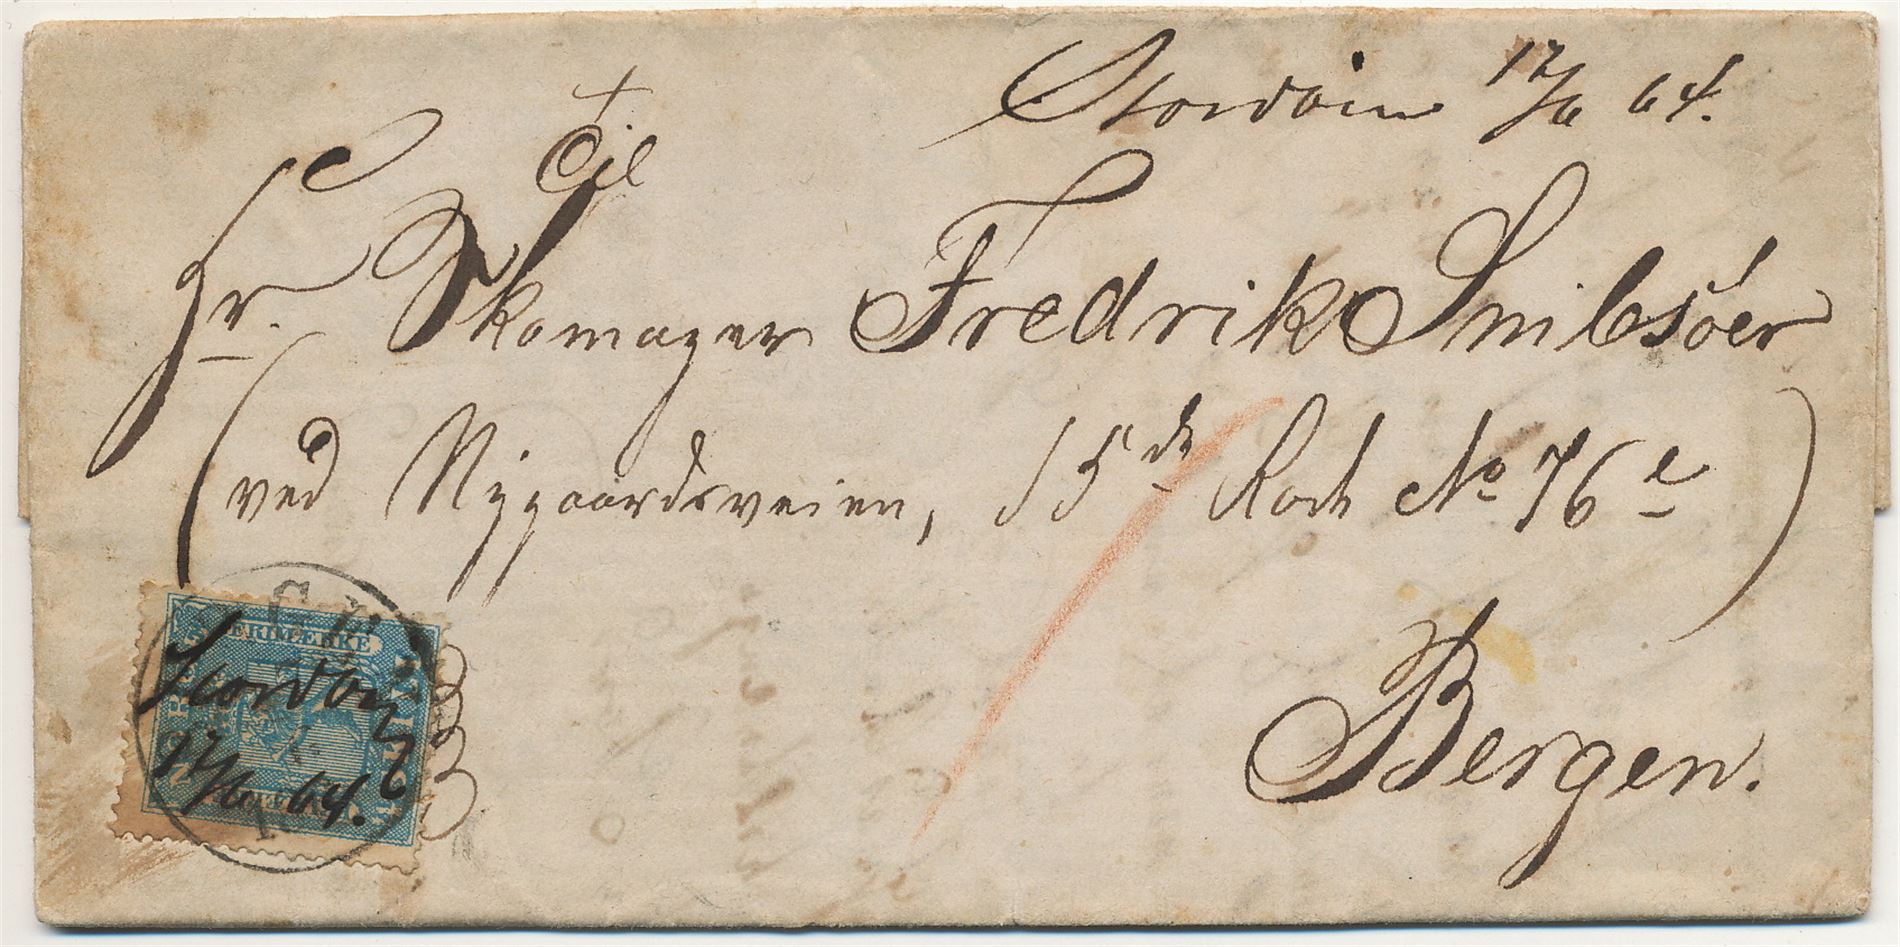 Stordøen 17/6 64.
Til
Hr. Skomager Fredrik Smilsøer
(ved Nygaardsveien, 15de Rode No 76e)
Bergen.
FRIMÆRKE
Stordøen
17/6 64.